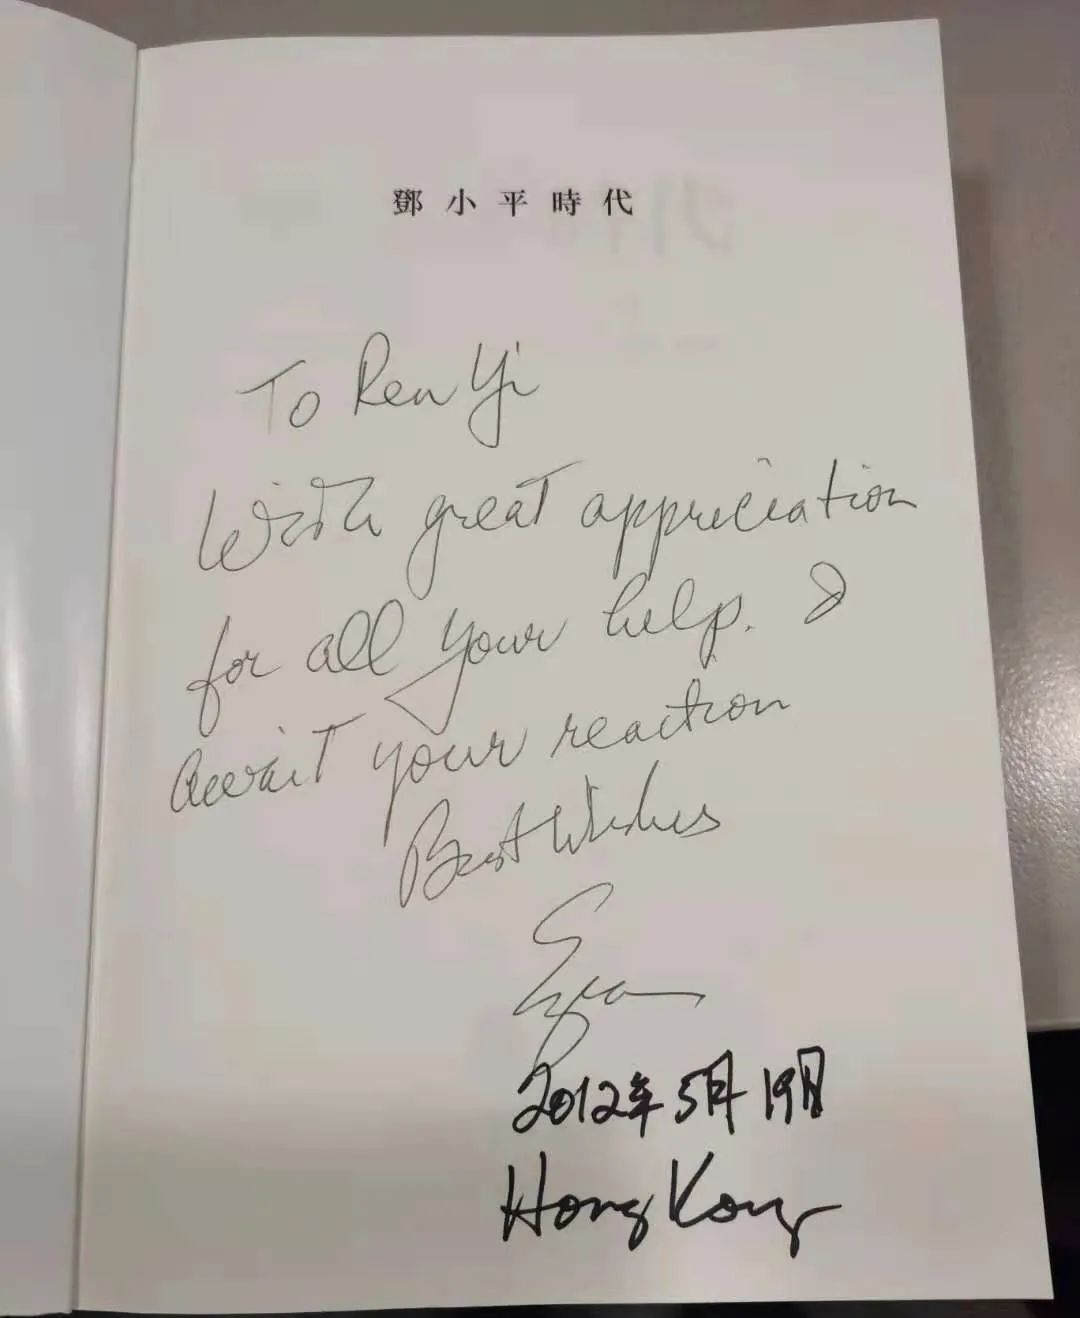 鄧小平時代
To Ren Yi
With great appreciation
for all your help. I
await your reaction
Best Wishes
Ezra
2012年5月19日
Hong Kong